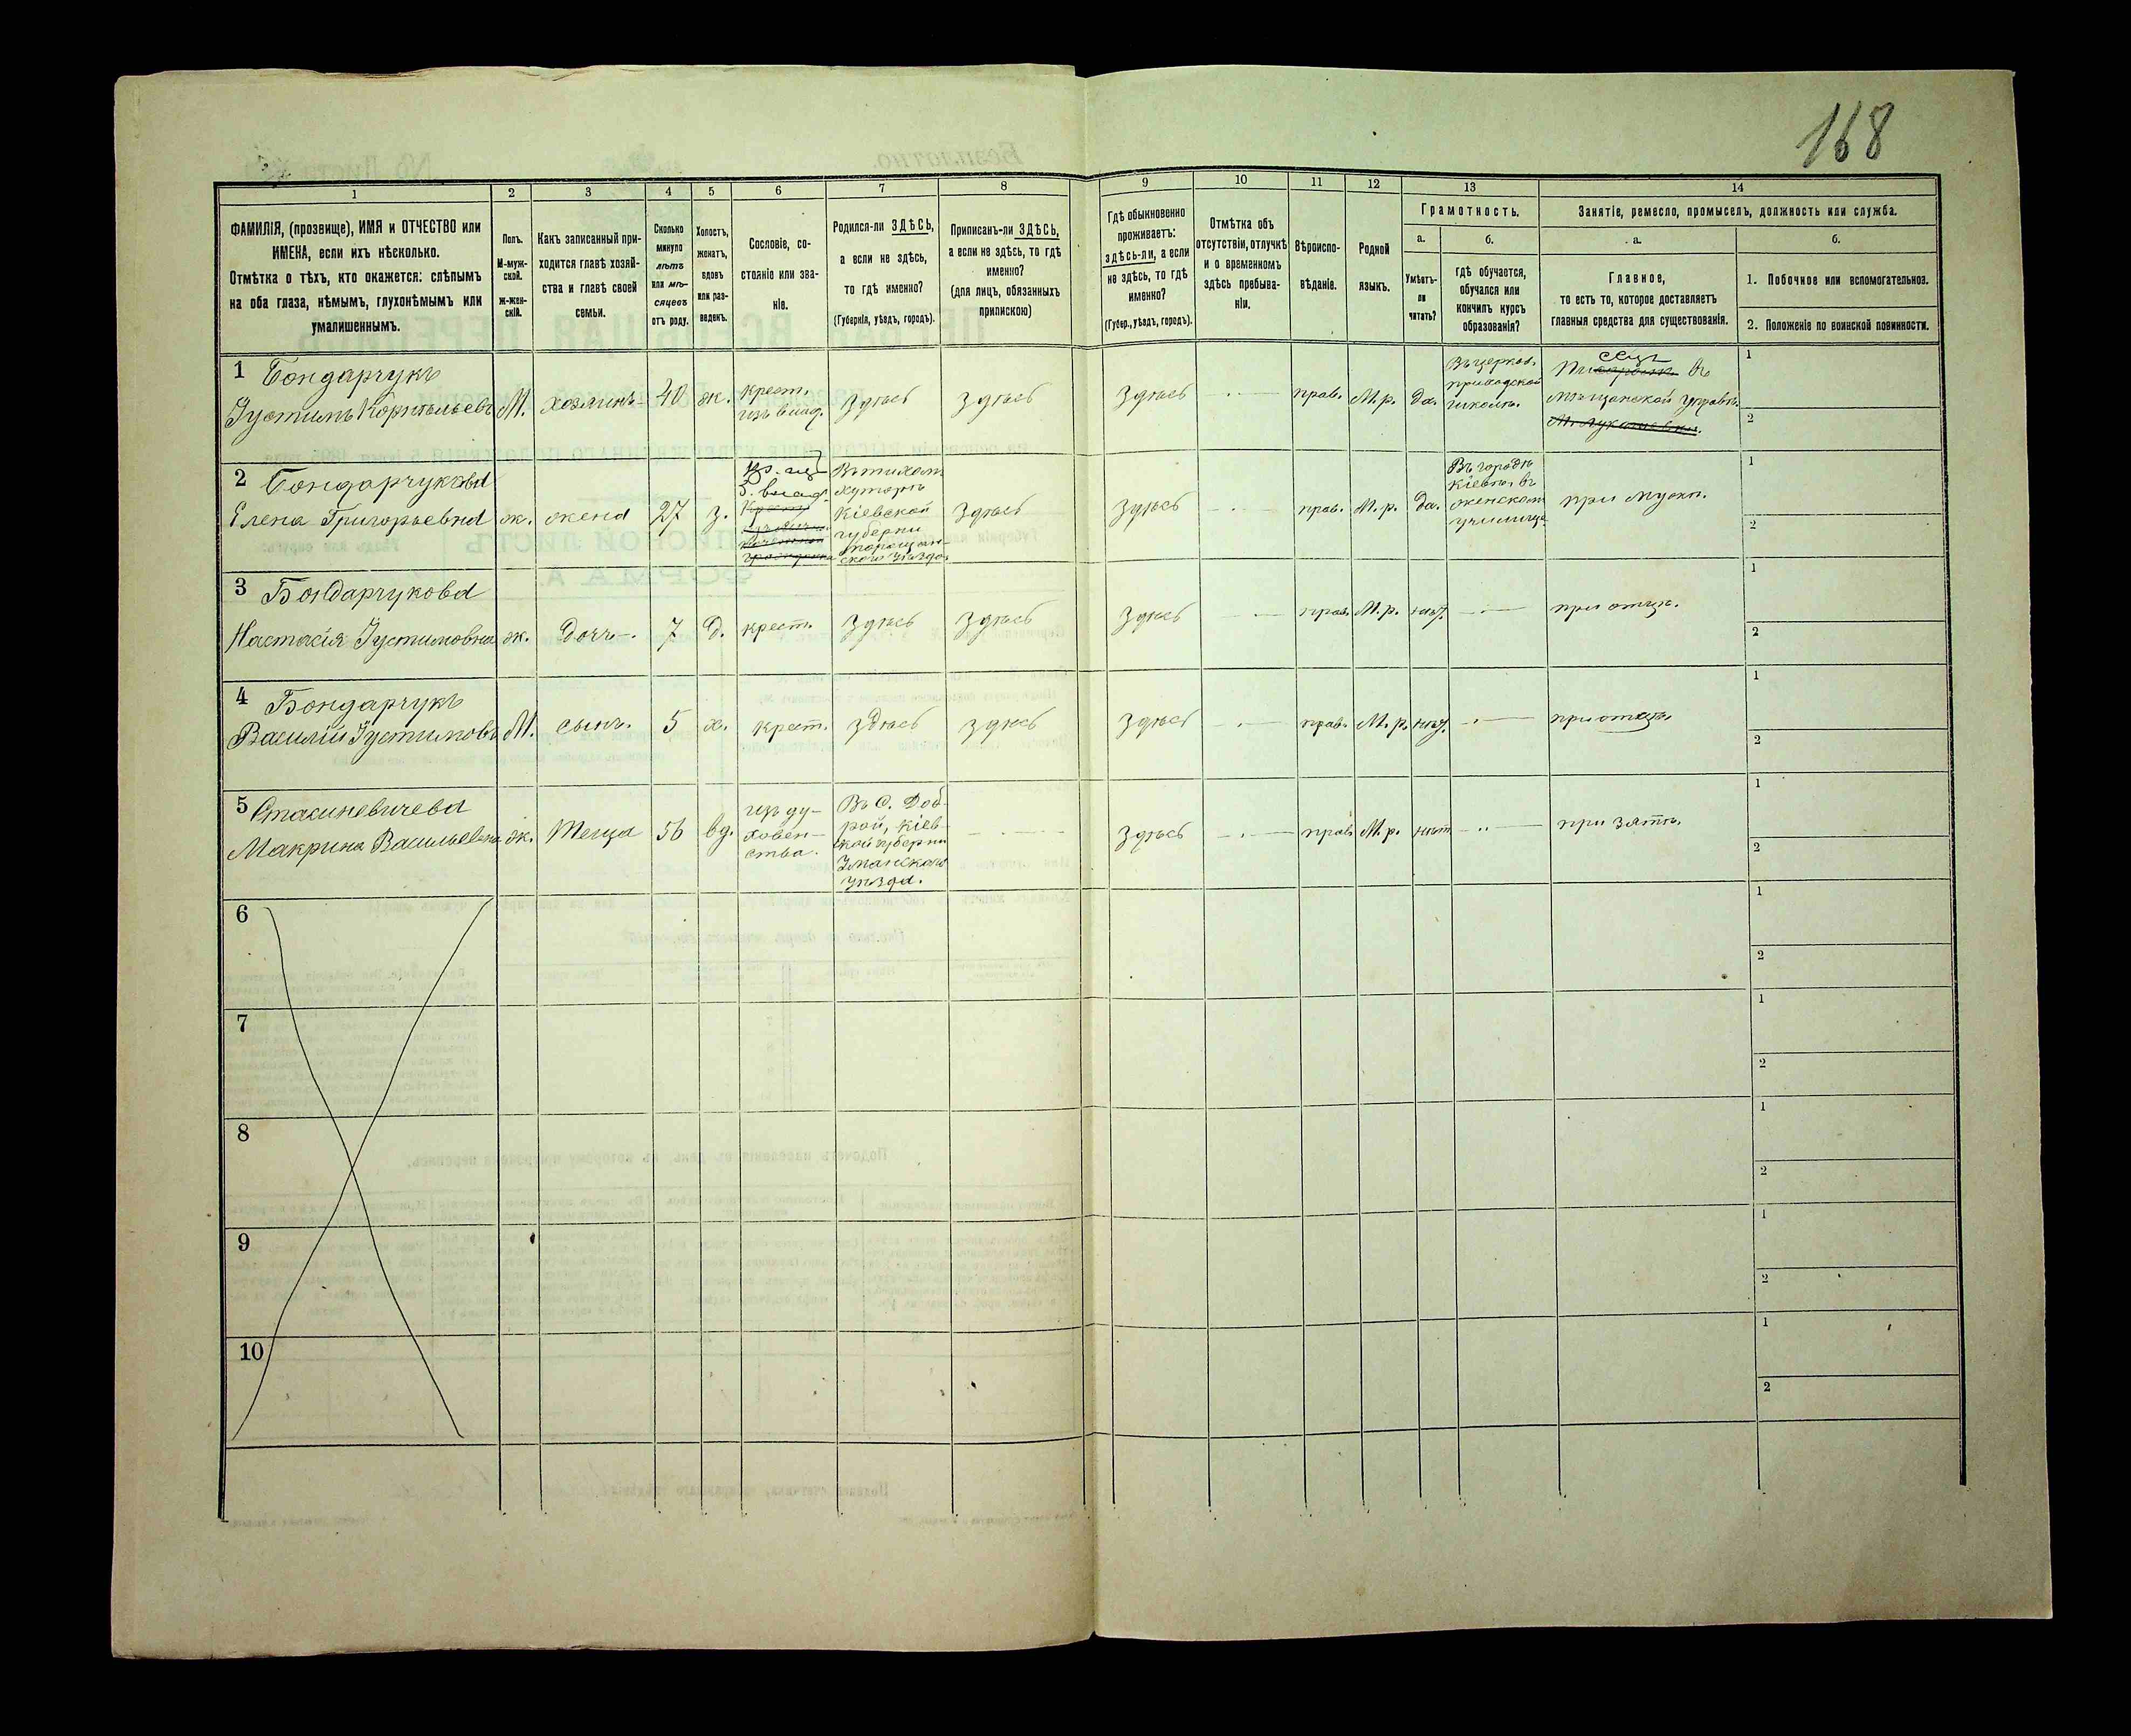 168
1
2
3
4
5
6
7
8
9
10
11
12
13
14
ФАМИЛІЯ, (прозвище), ИМЯ и ОТЧЕСТВО или
ИМЕНА, если ихъ нѣсколько.
Отмѣтка о тѣхъ, кто окажется: слѣпымъ
на оба глаза, нѣмымъ, глухонѣмымъ или
умалишеннымъ.
Полъ.
М-муж-
ской.
Ж-жен-
скій.
Какъ записанный при-
ходится главѣ хозяй-
ства и главѣ своей
семьи.
Сколько
минуло
лѣтъ
или мѣ-
сяцевъ
отъ роду.
Холостъ,
женатъ,
вдовъ
или раз-
веденъ.
Сословіе, со-
стояніе или зва-
ніе.
Родился-ли ЗДѢСЬ,
а если не здѣсь,
то гдѣ именно?
(Губернія, уѣздъ, городъ).
Приписанъ-ли ЗДѢСЬ,
а если не здѣсь, то гдѣ
именно?
(для лицъ, обязанныхъ
припискою)
Гдѣ обыкновенно
проживаетъ:
здѣсь-ли, а если
не здѣсь, то гдѣ
именно?
(Губер., уѣздъ, городъ).
Отмѣтка объ
отсутствіи, отлучкѣ
и о временномъ
здѣсь пребыва-
ніи.
Вѣроиспо-
вѣданіе.
Родной
языкъ.
Грамотность.
а.
Умѣетъ-
ли
читать?
б.
гдѣ обучается,
обучался или
кончилъ курсъ
образованія?
Занятіе, ремесло, промыселъ, должность или служба.
а.
Главное,
то есть то, которое доставляетъ
главныя средства для существованія.
б.
1. Побочное или вспомогательное.
2. Положеніе по воинской повинности.
1 Бондарчукъ
Густинъ Корнильевъ
М.
хозяинъ
40
ж.
крест.
изъ влад.
Здѣсь
здѣсь
Здѣсь
прав.
М.р.
да.
Въ церков.
приходской
школѣ.
сецъ
въ
мѣщанской управѣ.
1
2
2 Бондарчукова
Елена Григорьевна
ж.
жена
27
з.
Кіевской
губерни
Здѣсь
Здѣсь
прав.
М.р.
да.
Въ городѣ
Кіевѣ, въ
женскомъ
училищѣ
при мужѣ.
1
2
3 Бондарчукова
Настасія Густиновна
ж.
Дочь.
7
д.
крест.
Здѣсь
Здѣсь
Здѣсь
прав.
М.р.
нѣт.
при отцѣ.
1
2
4 Бондарчукъ
Василій Густиновъ
М.
сынъ.
5
х.
крест.
здѣсь
здѣсь
Здѣсь
прав.
М.р.
нѣт.
при отцѣ.
1
2
5 Стасиневичева
Макрина Васильевна
ж.
Теща
56
вд.
изъ ду-
ховен-
ства.
Въ С. Доб-
рой, Кіев-
ской губерни
Уманскаго
уѣзда.
Здѣсь
прав.
М.р.
нѣт
при зятѣ.
1
2
6
1
2
7
1
2
8
1
2
9
1
2
10
1
2